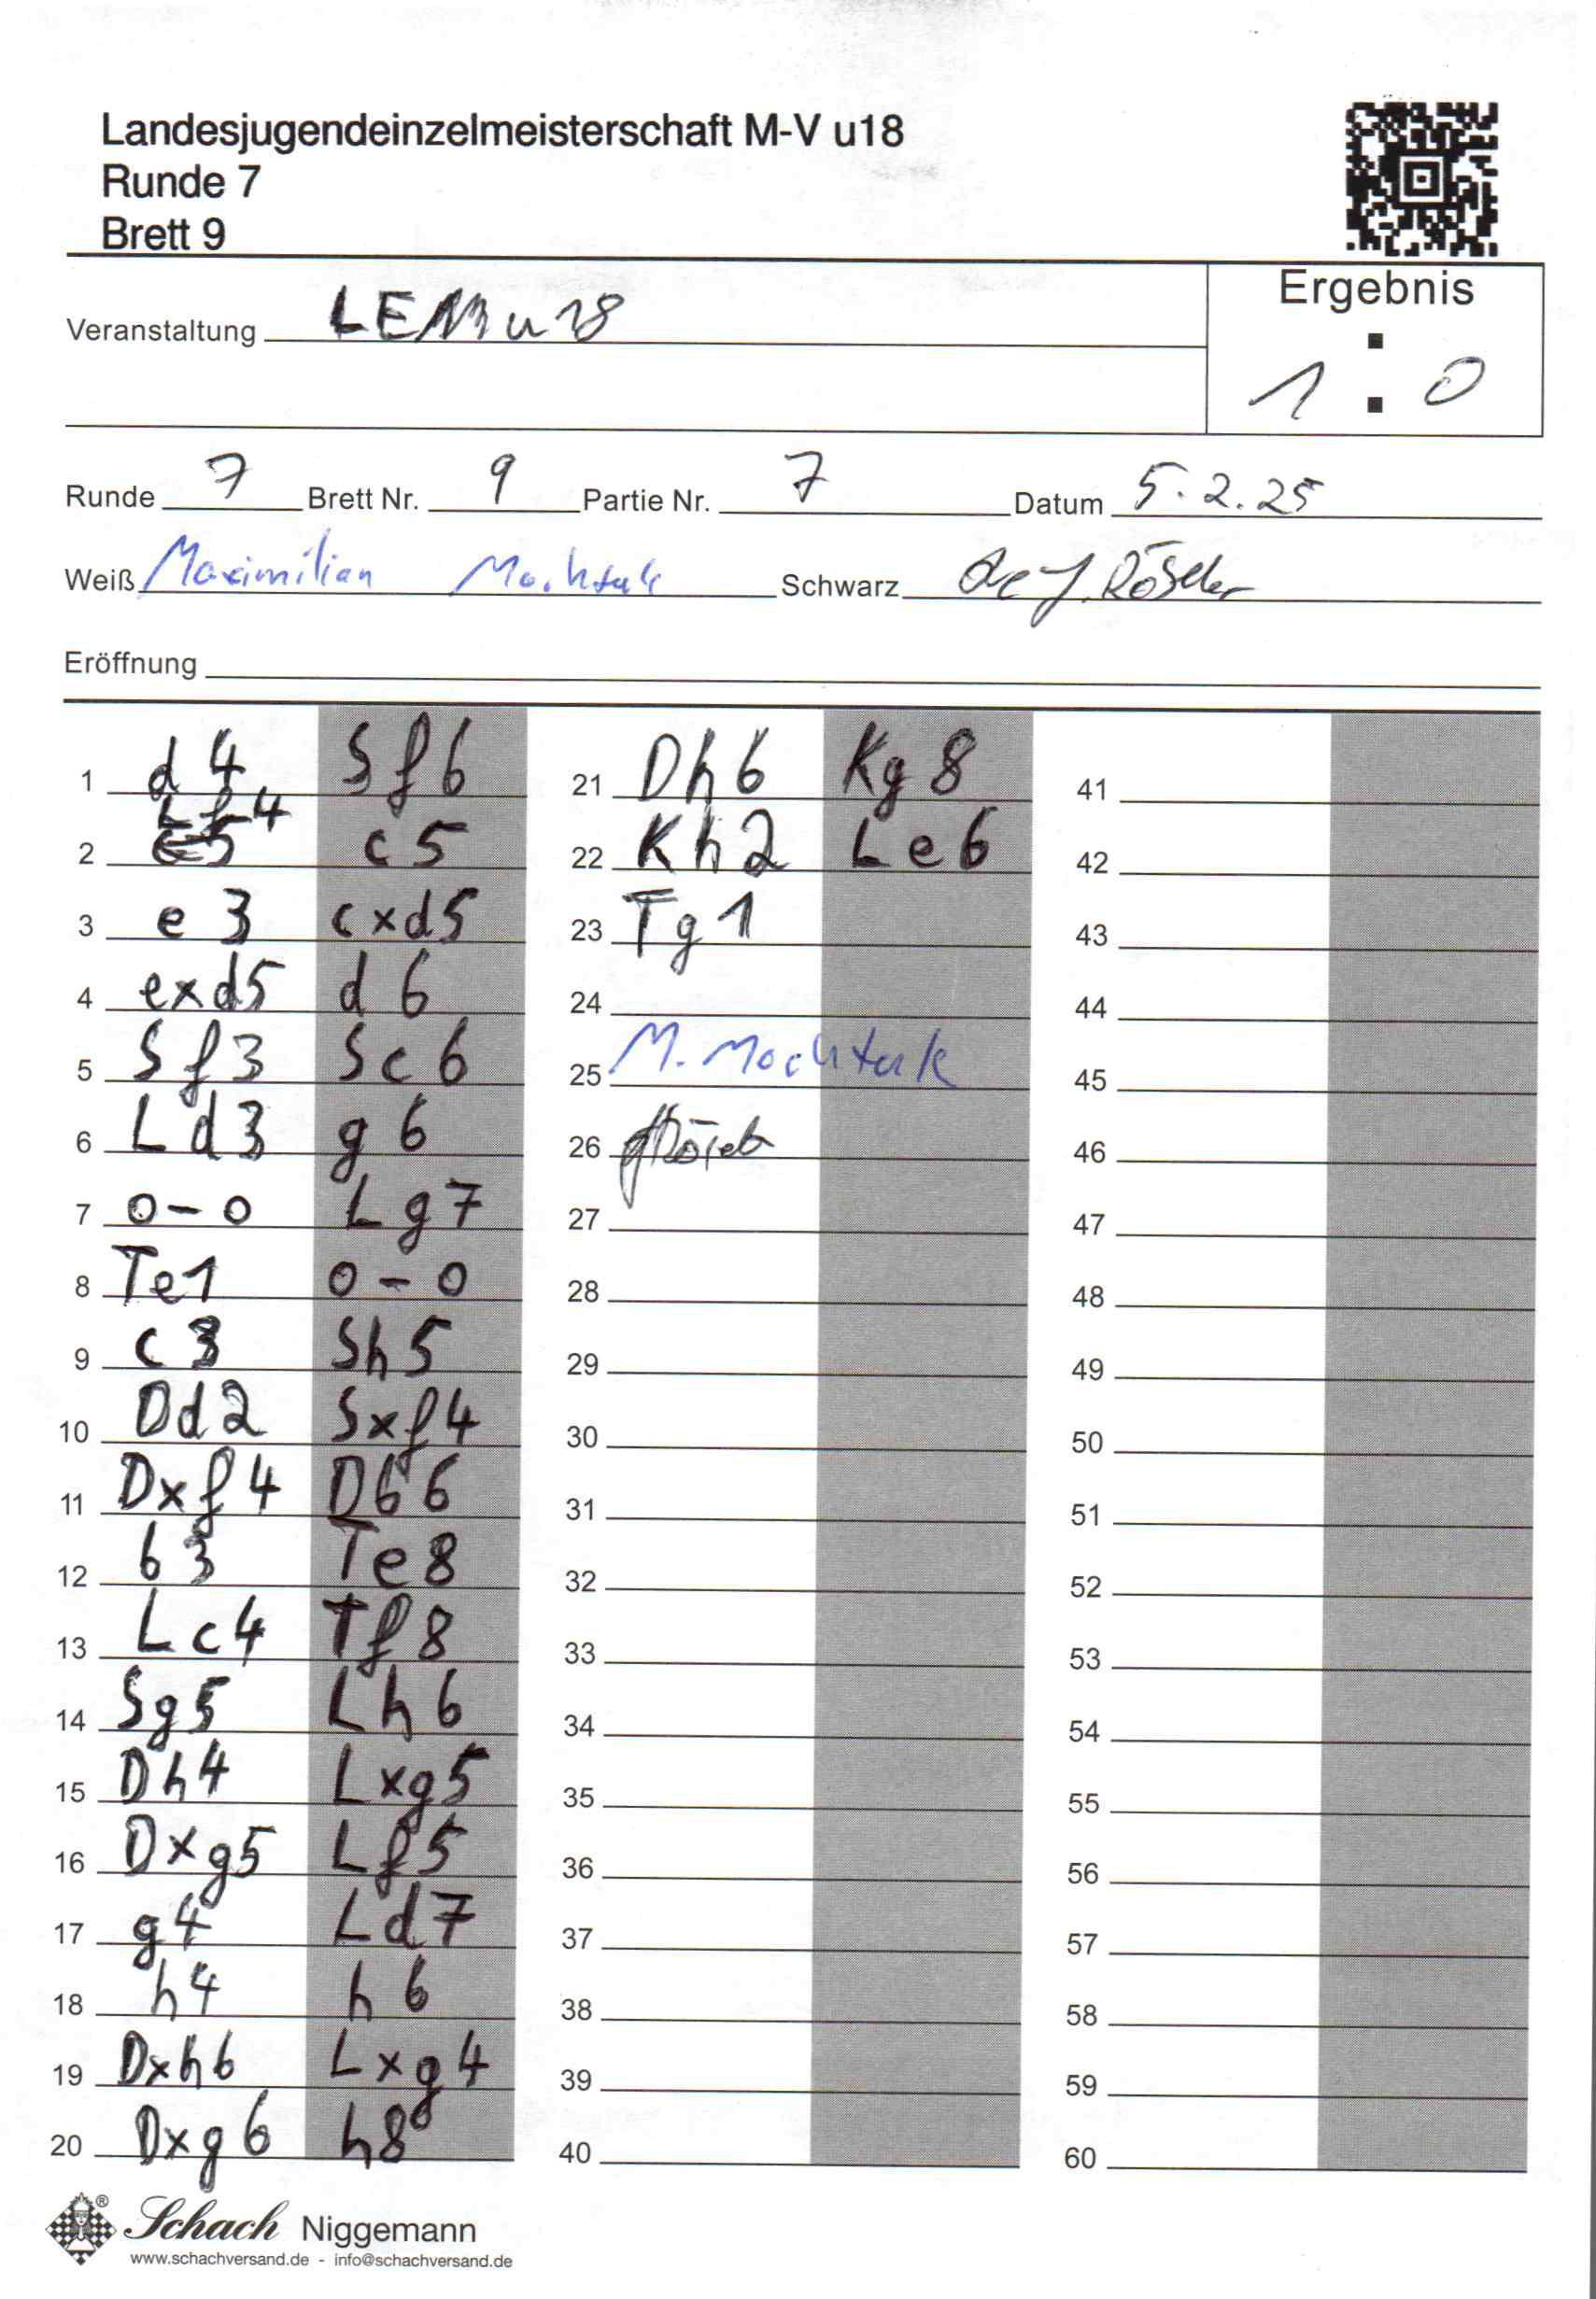 Landesjugendeinzelmeisterschaft M-V u18
Runde 7
Brett 9
Ergebnis
Veranstaltung LEM u18
1 : 0
Runde 7 Brett Nr. 9 Partie Nr. 7 Datum 5.2.25
Weiß Maximilian Mochtak Schwarz
Eröffnung
1 d4 Sf6
Lf4
2 c5
3 e3 cxd5
4 exd5 d6
5 Sf3 Sc6
6 Ld3 g6
7 0-0 Lg7
8 Te1 0-0
9 c3 Sh5
10 Dd2 Sxf4
11 Dxf4 Db6
12 b3 Te8
13 Lc4 Tf8
14 Sg5 Lh6
15 Dh4 Lxg5
16 Dxg5 Lf5
17 g4 Ld7
18 h4 h6
19 Dxh6 Lxg4
20 Dxg6 h8
21 Dh6 Kg8
22 Kh2 Le6
23 Tg1
24
25 M. Mochtak
26
27
28
29
30
31
32
33
34
35
36
37
38
39
40
41
42
43
44
45
46
47
48
49
50
51
52
53
54
55
56
57
58
59
60
Schach Niggemann
www.schachversand.de - info@schachversand.de